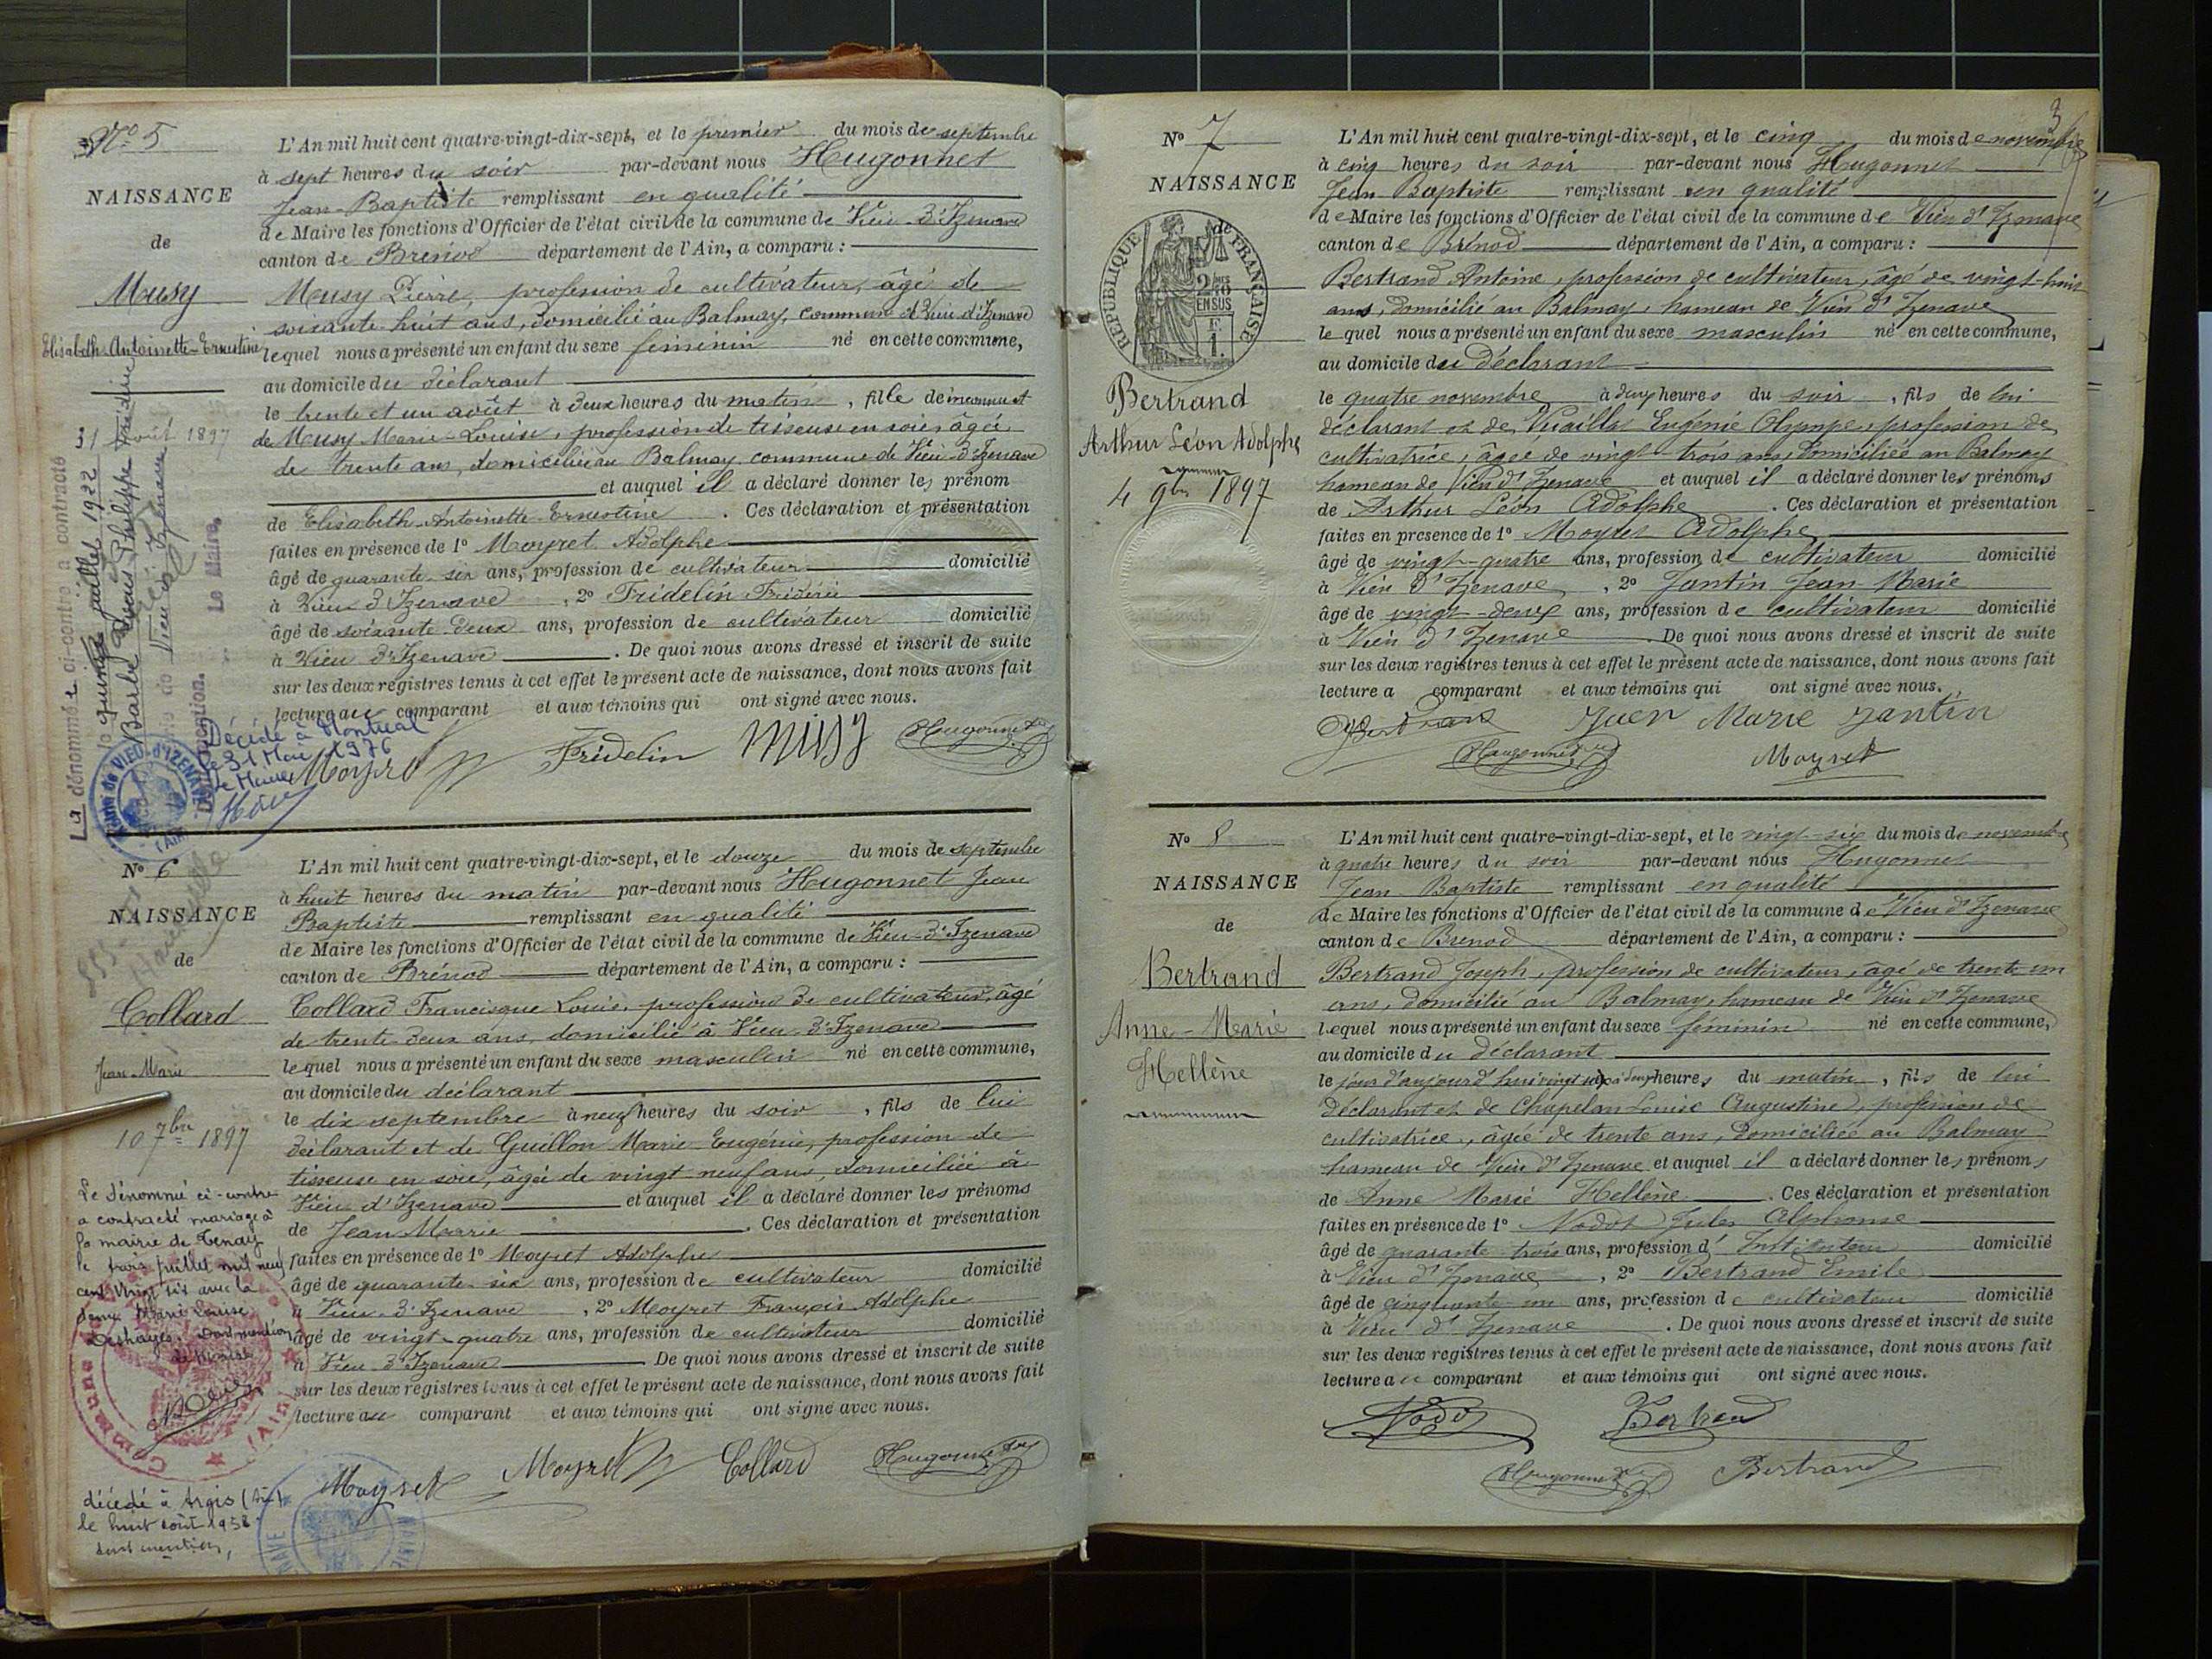 Nº 5
NAISSANCE
de
Musy
Elisabeth-Antoinette-Ernestine
31 août 1897
La dénommée ci-contre a contracté
juillet 1922
Barbe Philippe
Vieu d'Izenave
Le Maire,
Décédé à Montréal
le 31 Mai 1976
le Maire
L'An mil huit cent quatre-vingt-dix-sept, et le premier du mois de septembre
à sept heures du soir par-devant nous Hugonnet
Jean-Baptiste remplissant en qualité
de Maire les fonctions d'Officier de l'état civil de la commune de Vieu-d'Izenave
canton de Brénod département de l'Ain, a comparu :
Musy Pierre, profession de cultivateur, âgé de
soixante huit ans, domicilié au Balmay, commune de Vieu d'Izenave
lequel nous a présenté un enfant du sexe féminin né en cette commune,
au domicile du déclarant
le trente et un août à deux heures du matin, fille de inconnu et
de Musy Marie-Louise, profession de tisseuse en soie, âgée
de trente ans, domiciliée au Balmay commune de Vieu-d'Izenave
et auquel il a déclaré donner les prénom
de Elisabeth-Antoinette-Ernestine . Ces déclaration et présentation
faites en présence de 1º Moyret Adolphe
âgé de quarante-six ans, profession de cultivateur domicilié
à Vieu d'Izenave , 2º Fridelin Frédéric
âgé de soixante deux ans, profession de cultivateur domicilié
à Vieu d'Izenave . De quoi nous avons dressé et inscrit de suite
sur les deux registres tenus à cet effet le présent acte de naissance, dont nous avons fait
lecture au comparant et aux témoins qui ont signé avec nous.
Moyret Fridelin Musy Hugonnet
Nº 6
NAISSANCE
de
Collard
Jean-Marie
10 7bre 1897
Le dénommé ci-contre
a contracté mariage à
la mairie de Tenay
le trois juillet mil neuf
cent vingt six avec la
dame Marie Louise
Deshayes. Dont mention
le Maire
décédé à Argis (Ain)
le huit août 1958
dont mention,
L'An mil huit cent quatre-vingt-dix-sept, et le douze du mois de septembre
à huit heures du matin par-devant nous Hugonnet Jean
Baptiste remplissant en qualité
de Maire les fonctions d'Officier de l'état civil de la commune de Vieu-d'Izenave
canton de Brénod département de l'Ain, a comparu :
Collard Francisque Louis, profession de cultivateur, âgé
de trente deux ans, domicilié à Vieu-d'Izenave
lequel nous a présenté un enfant du sexe masculin né en cette commune,
au domicile du déclarant
le dix septembre à neuf heures du soir , fils de lui
déclarant et de Guillon Marie-Eugénie, profession de
tisseuse en soie, âgée de vingt neuf ans, domiciliée à
Vieu d'Izenave et auquel il a déclaré donner les prénoms
de Jean Marie . Ces déclaration et présentation
faites en présence de 1º Moyret Adolphe
âgé de quarante-six ans, profession de cultivateur domicilié
à Vieu-d'Izenave , 2º Moyret François-Adolphe
âgé de vingt-quatre ans, profession de cultivateur domicilié
à Vieu d'Izenave De quoi nous avons dressé et inscrit de suite
sur les deux registres tenus à cet effet le présent acte de naissance, dont nous avons fait
lecture au comparant et aux témoins qui ont signé avec nous.
Moyret Moyret Collard Hugonnet
3
Nº 7
NAISSANCE
RÉPUBLIQUE FRANÇAISE
2/10 EN SUS
Bertrand
Arthur Léon Adolphe
4 9bre 1897
L'An mil huit cent quatre-vingt-dix-sept, et le cinq du mois de novembre
à cinq heures du soir par-devant nous Hugonnet
Jean-Baptiste remplissant en qualité
de Maire les fonctions d'Officier de l'état civil de la commune de Vieu d'Izenave
canton de Brénod département de l'Ain, a comparu :
Bertrand Antoine, profession de cultivateur, âgé de vingt-huit
ans, domicilié au Balmay, hameau de Vieu d'Izenave
lequel nous a présenté un enfant du sexe masculin né en cette commune,
au domicile du déclarant
le quatre novembre à deux heures du soir , fils de lui
déclarant et de Vuaillat Eugénie Olympe, profession de
cultivatrice, âgée de vingt-trois ans, domiciliée au Balmay
hameau de Vieu d'Izenave et auquel il a déclaré donner les prénoms
de Arthur Léon Adolphe . Ces déclaration et présentation
faites en présence de 1º Moyret Adolphe
âgé de vingt-quatre ans, profession de cultivateur domicilié
à Vieu d'Izenave , 2º Jantin Jean-Marie
âgé de vingt-deux ans, profession de cultivateur domicilié
à Vieu d'Izenave . De quoi nous avons dressé et inscrit de suite
sur les deux registres tenus à cet effet le présent acte de naissance, dont nous avons fait
lecture a comparant et aux témoins qui ont signé avec nous.
Bertrand Jean Marie Jantin
Hugonnet Moyret
Nº 8
NAISSANCE
de
Bertrand
Anne-Marie
Hellène
L'An mil huit cent quatre-vingt-dix-sept, et le vingt-six du mois de novembre
à quatre heures du soir par-devant nous Hugonnet
Jean-Baptiste remplissant en qualité
de Maire les fonctions d'Officier de l'état civil de la commune de Vieu d'Izenave
canton de Brenod département de l'Ain, a comparu :
Bertrand Joseph, profession de cultivateur, âgé de trente un
ans, domicilié au Balmay, hameau de Vieu d'Izenave
lequel nous a présenté un enfant du sexe féminin né en cette commune,
au domicile du déclarant
le jour d'aujourd'hui vingt six à deux heures du matin , fils de lui
déclarant et de Chapelan Louise Augustine, profession de
cultivatrice, âgée de trente ans, domiciliée au Balmay
hameau de Vieu d'Izenave et auquel il a déclaré donner les prénoms
de Anne Marie Hellène . Ces déclaration et présentation
faites en présence de 1º Nodot Jules Alphonse
âgé de quarante-trois ans, profession d'Instituteur domicilié
à Vieu d'Izenave , 2º Bertrand Emile
âgé de cinquante-un ans, profession de cultivateur domicilié
à Vieu d'Izenave . De quoi nous avons dressé et inscrit de suite
sur les deux registres tenus à cet effet le présent acte de naissance, dont nous avons fait
lecture au comparant et aux témoins qui ont signé avec nous.
Nodot Bertrand
Hugonnet Bertrand